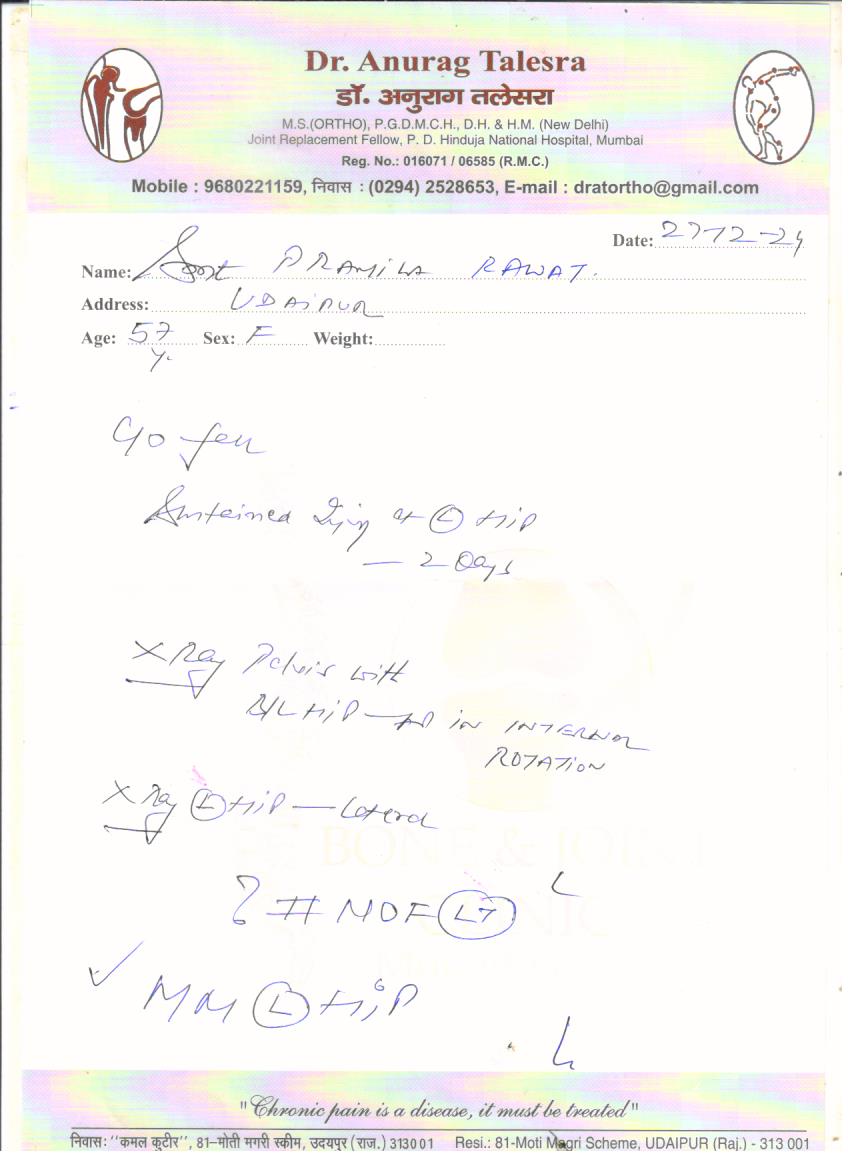 Dr. Anurag Talesra
डॉ. अनुराग तलेसरा
M.S.(ORTHO), P.G.D.M.C.H., D.H. & H.M. (New Delhi)
Joint Replacement Fellow, P. D. Hinduja National Hospital, Mumbai
Reg. No.: 016071 / 06585 (R.M.C.)
Mobile : 9680221159, निवास : (0294) 2528653, E-mail : dratortho@gmail.com
Date: 27-12-24
Name: Smt PRAMILA RAWAT.
Address: UDAIPUR
Age: 57 y. Sex: F Weight:
C/o fell
Sustained Injury at (L) HIP
— 2 Days
X Ray Pelvis with
B/L HIP — AP IN INTERNAL
ROTATION
X Ray (L) HIP — Lateral
? # NOF (LT)
✓ (L) HIP
BONE & JOINT
"Chronic pain is a disease, it must be treated"
निवास: "कमल कुटीर", 81-मोती मगरी स्कीम, उदयपुर (राज.) 313001 Resi.: 81-Moti Magri Scheme, UDAIPUR (Raj.) - 313 001